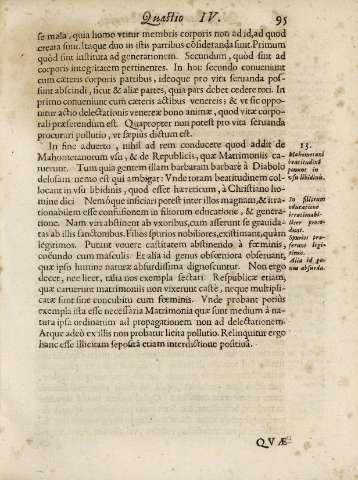 Quæstio IV. 95
se mala, quia homo vtitur membris corporis non ad id, ad quod
creata sunt. Itaque duo in istis partibus cõsideranda sunt. Primum
quòd sint instituta ad generationem. Secundum, quòd sint ad
corporis integritatem pertinentes. In hoc secundo conueniunt
cum cæteris corporis partibus, ideoque pro vita seruanda pos-
sunt abscindi, sicut & aliæ partes, quia pars debet cedere toti. In
primo conueniunt cum cæteris actibus venereis; & vt sic oppo-
nitur actio delectationis venereæ bono animæ, quod vitæ corpo-
rali præferendum est. Quapropter non potest pro vita seruanda
procurari pollutio, vt sæpiùs dictum est.
In fine aduerto, nihil ad rem conducere quod addit de
Mahometanorum vsu, & de Republicis, quæ Matrimoniis ca-
ruerunt. Tum quia gentem illam barbaram barbarè à Diabolo
delusam nemo est qui ambigat: Vnde totam beatitudinem col-
locant in vsu libidinis, quod esset hæreticum, à Christiano ho-
mine dici Nemóque inficiari potest inter illos magnam, & irra-
tionabilem esse confusionem in filiorum educatione, & genera-
tione. Nam viri abstinent ab vxoribus, cum asserunt se grauida-
tas ab illis sanctonibus. Filios spurios nobiliores, existimant, quàm
legitimos. Putant vouere castitatem abstinendo à fœminis,
coëundo cum masculis. Et alia id genus obscœniora obseruant,
quæ ipso lumine naturæ absurdissima dignoscuntur. Non ergo
decet, nec licet, talia nos exempla sectari. Respublicæ etiam,
quæ caruerunt matrimoniis non vixerunt castè, neque multipli-
catæ sunt sine concubitu cum fœminis. Vnde probant potiùs
exempla ista esse necessaria Matrimonia quæ sunt medium à na-
tura ipsa ordinatum ad propagationem non ad delectationem.
Atque adeò ex illis non probatur licita pollutio. Relinquitur ergo
hanc esse illicitam sepositâ etiam interdictione positiuâ.
13.
Mahometani
beatitudinẽ
ponunt in
vsu libidinis.
In filiorum
educatione
irrationabi-
liter proce-
dunt.
Spurios præ-
ferunt legi-
timis.
Alia id ge-
nus absurda.
QVÆ